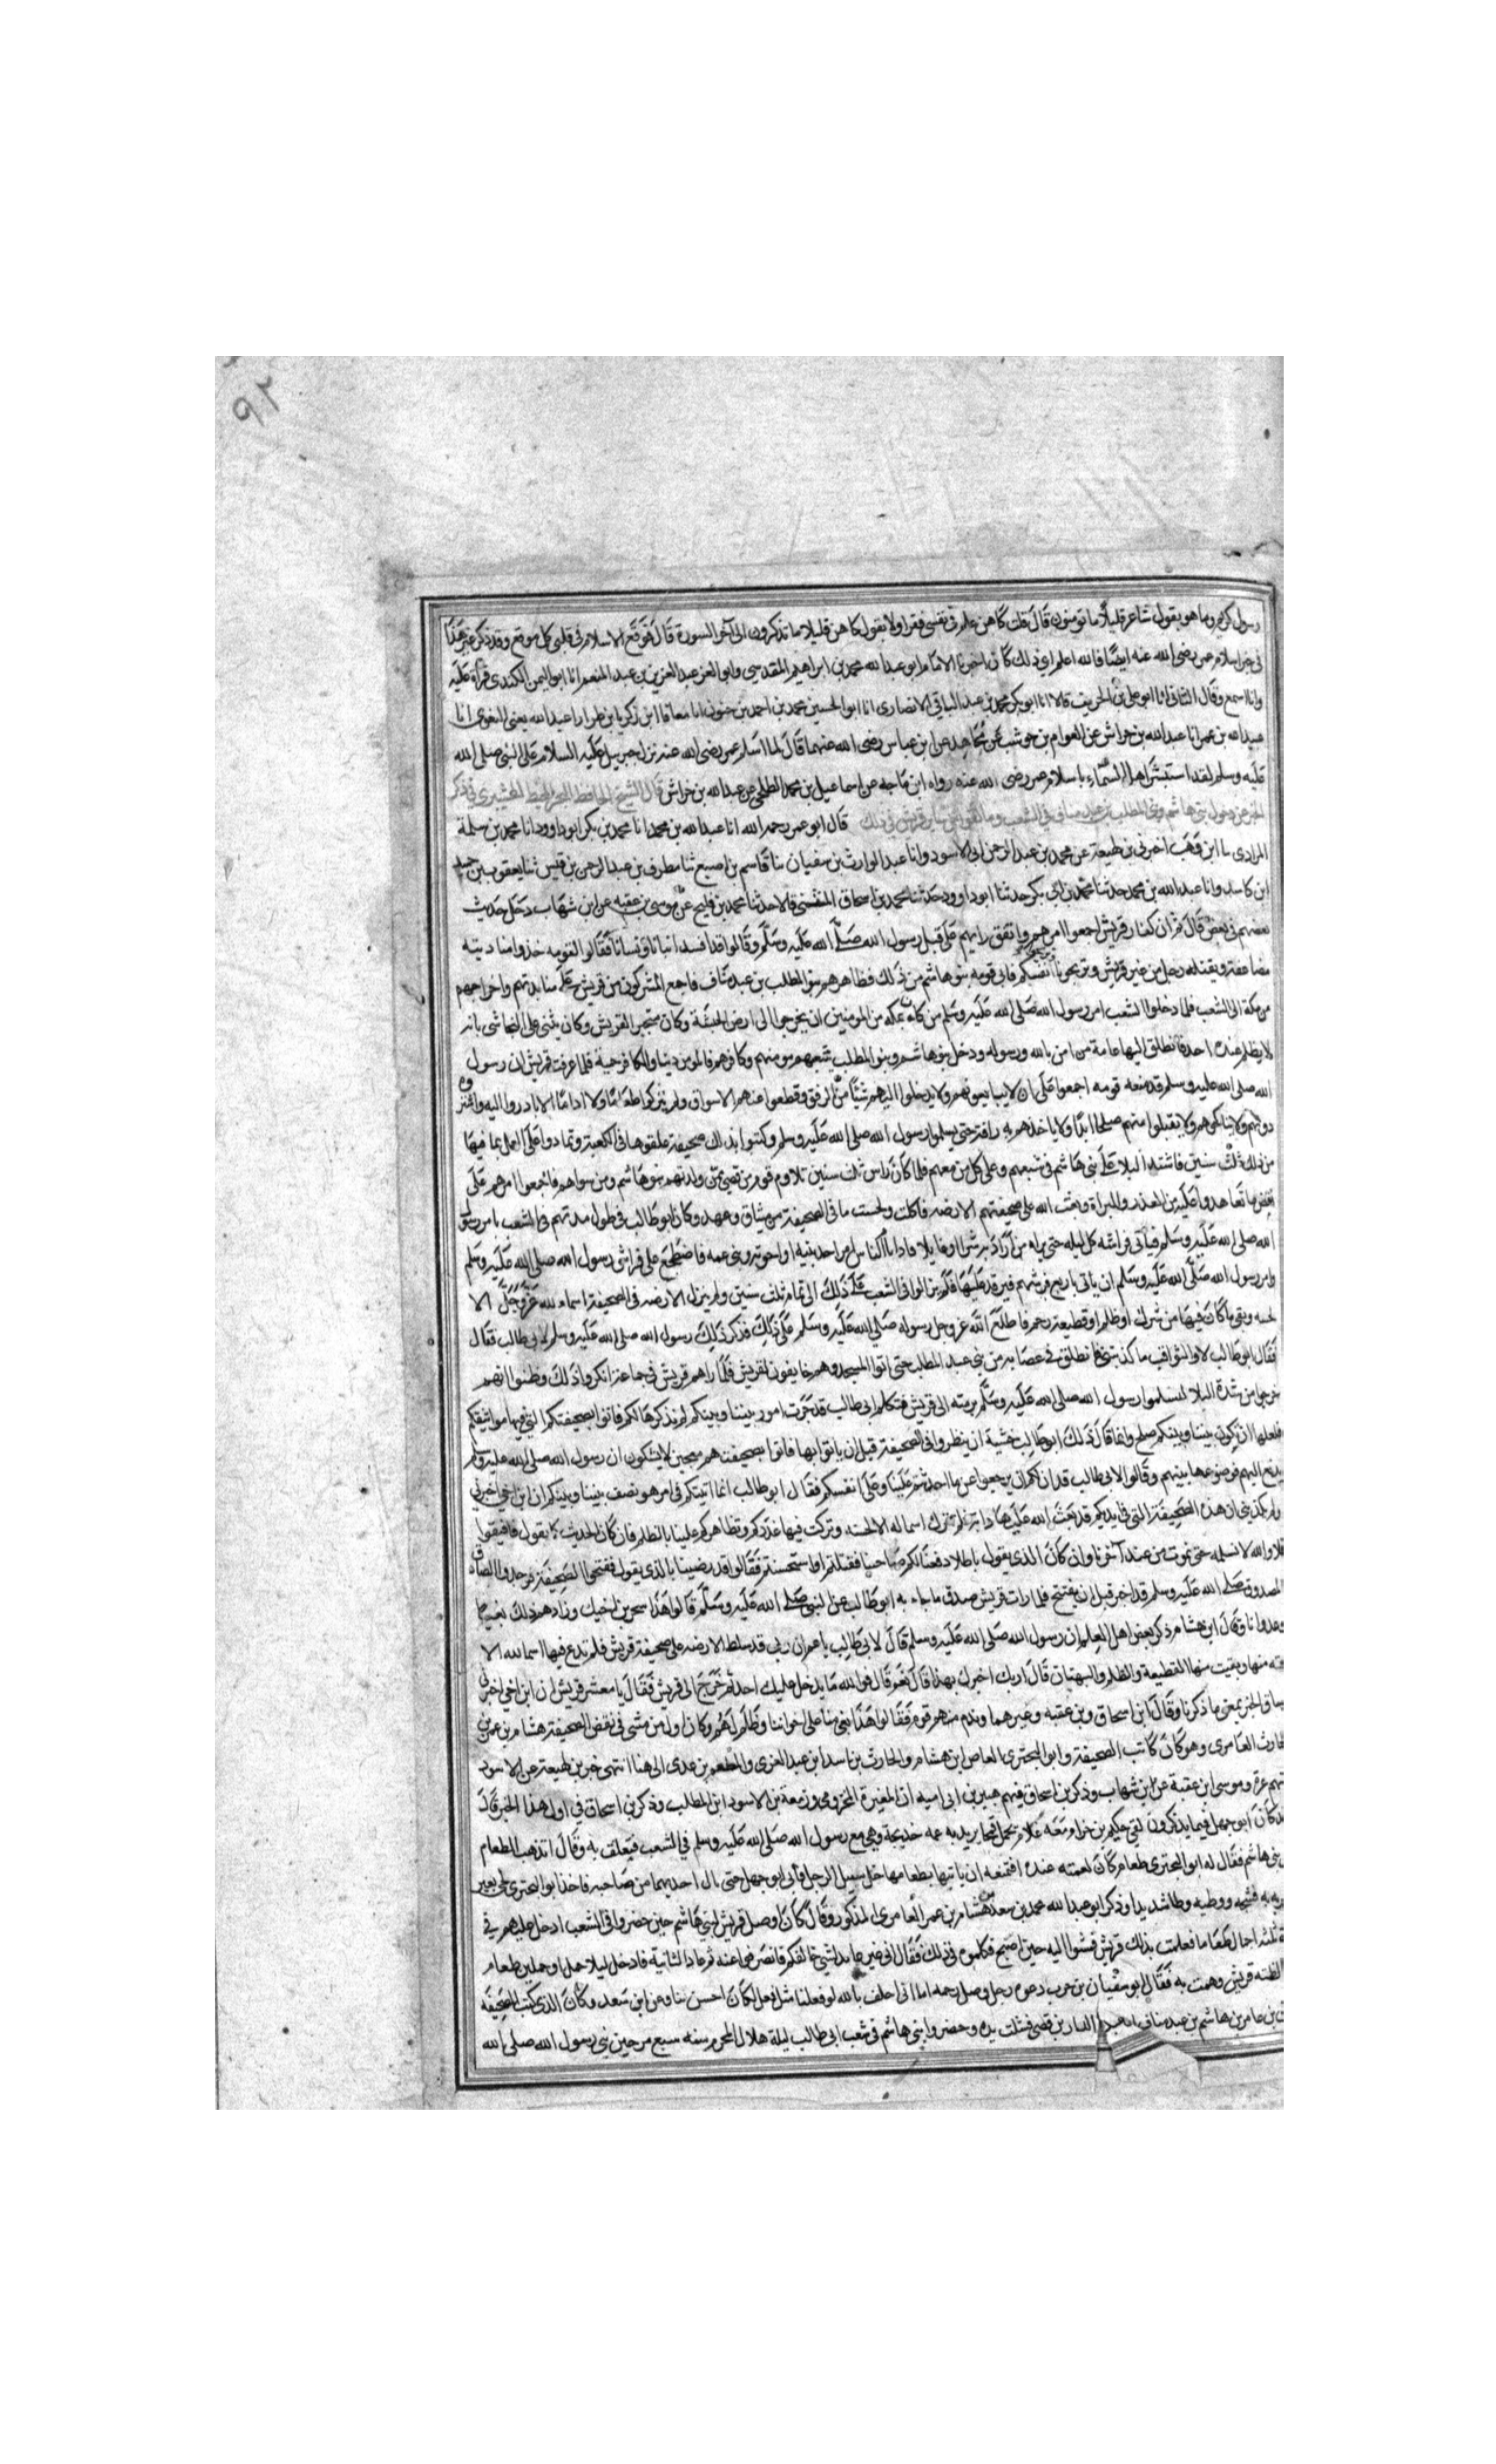 رسول كريم وما هو بقول شاعر قليلا ما تومنون قال قلت كاهن علم ما في نفسي فقرا ولا بقول كاهن قليلا ما تذكرون الى آخر السورة قال فوقع الاسلام في قلبي كل موقع وقد ذكر غير هذا
في خبر اسلام عمر رضى الله عنه ايضا فالله اعلم اي ذلك كان اخبرنا الامام ابو عبد الله محمد بن ابراهيم المقدسي وابو العز عبد العزيز بن عبد المنعم انا ابو اليمن الكندى قرأة عليه
وانا اسمع وقال الثاني انا ابو على بن الخريف قالا انا ابو بكر محمد بن عبد الباقي الانصارى انا ابو الحسين محمد بن احمد بن حنون انا ابن زكريا بن طرارا عبد الله يعني البغوى انا
عبد الله بن عمر انا عبد الله بن خراش عن العوام بن حوشب عن مجاهد عن ابن عباس رضى الله عنهما قال لما اسلم عمر رضى الله عنه نزل جبريل عليه السلام على النبي صلى الله
عليه وسلم لقد استبشر اهل السمآء باسلام عمر رضى الله عنه رواه ابن ماجه عن اسماعيل بن محمد الطلحي عن عبد الله بن خراش قال الشيخ الحافظ في ذكر
الخبر عن دخول بني هاشم وبني المطلب بن عبد مناف في الشعب وما لقوا من ساير قريش في ذلك قال ابو عمر رحمه الله انا عبد الله بن محمد انا محمد بن بكر ابو داود انا محمد بن سلمة
المرادى ابن وهب اخبرني بن لهيعة عن محمد بن عبد الرحمن ابي الاسود وانا عبد الوارث بن سفيان ثنا قاسم بن اصبغ ثنا مطرف بن عبد الرحمن بن قيس ثنا يعقوب بن حميد
ابن كاسب وانا عبد الله بن محمد حدثنا محمد بن ابى بكر حدثنا ابو داوود حدثنا محمد بن اسحاق قالا حدثنا محمد بن فليح عن موسى بن عقبه عن ابن شهاب دخل حديث
بعضهم في بعض قال ثم ان كفار قريش اجمعوا امرهم واتفق رايهم على قبل رسول الله صلى الله عليه وسلم وقالوا قد افسد ابنائنا ونسائنا فقالوا لقومه خذوا منا ديته
مضاعفة ويقتله رجل من غير قريش وتريحون انفسكم فابى قومه بنو هاشم من ذلك فظاهرهم بنو المطلب بن عبد مناف فاجمع المشركون من قريش على منابذتهم واخراجهم
من مكة الى الشعب فلما دخلوا الشعب امر رسول الله صلى الله عليه وسلم من كان بمكه من المومنين ان يخرجوا الى ارض الحبشة وكان متجر القريش وكان يثنى على النجاشى بانه
لا يظلم عنده احد فانطلق اليها عامة من امن بالله ورسوله ودخل بنو هاشم وبنو المطلب شعبهم مومنهم وكافرهم فالمومن دينا والكافر حمية فلما عرفت قريش ان رسول
الله صلى الله عليه وسلم قد منعه قومه اجمعوا على ان لا يبايعوهم ولا يدخلوا اليهم شيئا من الرفق وقطعوا عنهم الاسواق ولم يتركوا طعاما ولا اداما الا بادروا اليه واشتروه
دونهم ولا يناكحوهم ولا يقبلوا منهم صلحا ابدا ولا ياخذهم بهم رافة حتى يسلموا رسول الله صلى الله عليه وسلم وكتبوا بذلك صحيفة علقوها في الكعبة وتمادوا على العمل بما فيها
من ذلك ثلث سنين فاشتد البلا على بني هاشم في شعبهم وعلى كل من معهم فلما كان راس ثلث سنين تلاوم قوم من قصي ممن ولدتهم بنو هاشم ومن سواهم فاجمعوا امرهم على
نقض ما تعاهدوا عليه من الغدر والبراة وبعث الله على صحيفتهم الارضه فاكلت ولحست ما في الصحيفة من ميثاق وعهد وكان ابو طالب في طول مدتهم في الشعب يامر رسول
الله صلى الله عليه وسلم فياتى فراشه كل ليله حتى يراه من اراد به شرا او غايلة فاذا نام الناس امر احد بنيه او اخوته وبنى عمه فاضطجع على فراش رسول الله صلى الله عليه وسلم
وامر رسول الله صلى الله عليه وسلم ان ياتى باربع فرشهم فيرقد عليها فلم يزالوا في الشعب على ذلك الى تمام ثلث سنين ولم ينزل الارضه في الصحيفة اسماء لله عز وجل الا
لحسه وبقى ما كان فيها من شرك او ظلم او قطيعة رحم فاطلع الله عز وجل رسوله صلى الله عليه وسلم على ذلك فذكر ذلك رسول الله صلى الله عليه وسلم لابى طالب فقال
فقال ابو طالب لا والثواقب ما كذبتني فانطلق في عصابه من بني عبد المطلب حتى اتوا المسجد وهم خايفون لقريش فلما راهم قريش في جماعة انكروا ذلك وظنوا انهم
خرجوا من شدة البلا ليسلموا رسول الله صلى الله عليه وسلم برمته الى قريش فتكلم ابو طالب قد جرت امور بيننا وبينكم لم نذكرها لكم فاتوا بصحيفتكم التي فيها مواثيقكم
فلعلها ان يكون بيننا وبينكم صلح وانما قال ذلك ابو طالب خشية ان ينظروا في الصحيفة قبل ان ياتوا بها فاتوا بصحيفتهم معجبين لا يشكون ان رسول الله صلى الله عليه وسلم
يدفع اليهم فوضعوها بينهم وقالوا لابى طالب قد ان لكم ان ترجعوا عن ما احدثتم علينا وعلى انفسكم فقال ابو طالب انما اتيتكم في امر هو نصف بيننا وبينكم ان ابن اخي اخبرني
ولم يكذبني ان هذه الصحيفة التي في ايديكم قد بعث الله عليها دابة فلم تترك اسما له الا لحسته وتركت فيها غدركم وتظاهركم علينا بالظلم فان كان الحديث كما يقول فافيقوا
فلا والله لا نسلمه حتى نموت من عند آخرنا وان كان الذى يقول باطلا دفعنا لكم صاحبنا فقتلتم او استحييتم فقالوا قد رضينا بالذى يقول ففتحوا الصحيفة فوجدوا الصادق
المصدوق صلى الله عليه وسلم قد اخبر قبل ان يفتح فلما رات قريش صدق ما جاء به ابو طالب عن النبى صلى الله عليه وسلم قالوا هذا سحر بن اخيك وزادهم ذلك بغيا
وعدوانا وقال ابن هشام ذكر بعض اهل العلم ان رسول الله صلى الله عليه وسلم قال لابى طالب يا عم ان ربى قد سلط الارضه على صحيفة قريش فلم تدع فيها اسما لله الا
منها وبقيت منها القطيعة والظلم والبهتان قال اربك اخبرك بهذا قال نعم قال فوالله ما يدخل عليك احد ثم خرج الى قريش فقال يا معشر قريش ان ابن اخي اخبرنى
وساق الخبر بمعنى ما ذكرنا وقال ابن اسحاق وبن عقبه وغيرهما وندم منهم قوم فقالوا هذا بغي منا على اخواننا وظلم لهم وكان اول من مشى في نقض الصحيفة هشام بن عمرو بن
الحارث العامرى وهو كان كاتب الصحيفة وابو البخترى العاص ابن هشام والحارث بن اسد ابن عبد العزى والمطعم بن عدى الى هنا انتهى خبر بن لهيعة عن الاسود
عروة وموسى ابن عقبة عن ابن شهاب وذكر بن اسحاق فيهم بن ابى اميه ان المغيرة المخزومي وزمعة بن الاسود ابن المطلب وذكر بن اسحاق في اول هذا الخبر قال
كان ابو جهل فيما يذكرون لقى حكيم بن حزام معه غلام يحمل قمحا يريد به عمه خديجة وهي مع رسول الله صلى الله عليه وسلم في الشعب فتعلق به وقال اتذهب بالطعام
بني هاشم فقال له ابو البخترى طعام كان لعمته عنده افتمنعه ان ياتيها بطعامها خل سبيل الرجل فابى ابو جهل حتى نال احدهما من صاحبه فاخذ ابو البخترى لحى بعير
به فشجه ووطيه وطا شديدا وذكر ابو عبد الله محمد بن سعد هشام بن عمر العامرى المذكور وقال كان اوصل قريش لبني هاشم حين حضروا في الشعب ادخل عليهم في
احمال طعاما فعلمت بذلك قريش فمشوا اليه حين اصبح فكلموه في ذلك فقال انى غير عايد لشي خالفكم فانصرفوا عنه ثم عاد الثانية فادخل ليلا حملا او حملين طعام
قريش وهمت به فقال ابو سفيان بن حرب دعوه رجل وصل رحمه اما انى احلف بالله لو فعلنا مثل فعل لكان احسن بنا وعن ابن سعد وكان الذى كتب الصحيفه
بن عامر بن هاشم بن عبد مناف عبد الدار بن قصي فشلت يده وحضروا بني هاشم في شعب ابى طالب ليلة هلال المحرم سنه سبع من حين نبى رسول الله صلى الله